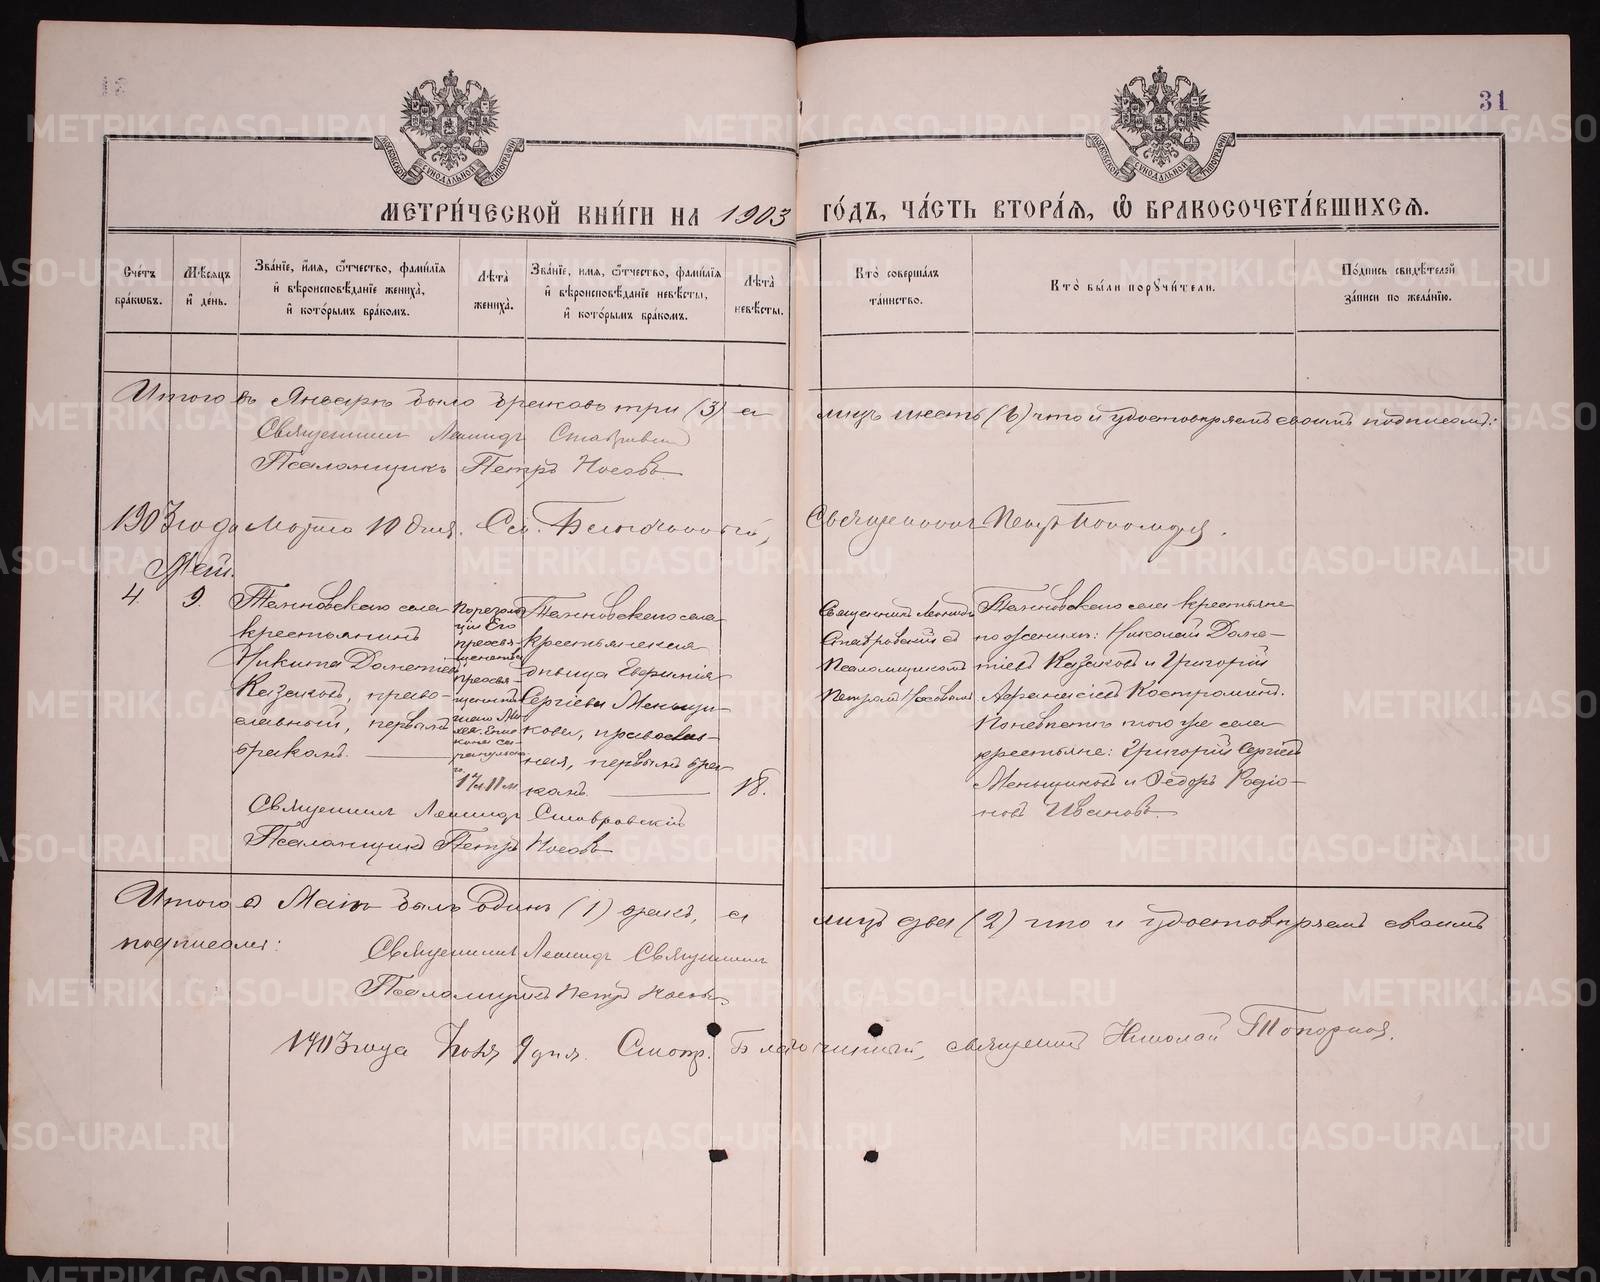 31
МОСКОВСКОЙ СѴНОДАЛЬНОЙ ТИПОГРАФІИ
МОСКОВСКОЙ СѴНОДАЛЬНОЙ ТИПОГРАФІИ
МЕТРИ́ЧЕСКОЙ КНИ́ГИ НА 1903 ГО́ДЪ, ЧА́СТЬ ВТОРА́Ѧ, Ѽ БРАКОСОЧЕТА́ВШИХСѦ.
Сче́тъ бра́кѡвъ.
Мѣ́сяцъ и҆ де́нь.
Зва́нїе, и҆́мя, ѻ҆́тчество, фами́лїя и҆ вѣроисповѣ́данїе жениха̀, и҆ кото́рымъ бра́комъ.
Лѣ́та̀ жениха̀.
Зва́нїе, и҆́мя, ѻ҆́тчество, фами́лїя и҆ вѣроисповѣ́данїе невѣ́сты, и҆ кото́рымъ бра́комъ.
Лѣ́та̀ невѣ́сты.
Кто̀ соверша́лъ та́инство.
Кто̀ бы́ли порꙋчи́тели.
По́дпись свидѣ́телей за́писи по жела́нїю.
Итого въ Январѣ было браковъ три (3) а лицъ шесть (6) что и удостовѣряемъ своимъ подписомъ:
Священникъ Леонидъ Ставровскій
Псаломщикъ Петръ Носовъ
1903 года Марта 10 дня. См. Благочинный, Священникъ Петръ Пономаревъ.
Май.
4.
9.
села
крестьянинъ
Никита Дометіевъ
Казаковъ, право-
славный, первымъ
бракомъ.
По резолю-
ціи Его
преосвя-
щенства
преосвя-
17 л. 11 м.
села
крестьянская
дѣвица Евфимія
Сергіева Меньщи-
кова, православ-
ная, первымъ бра-
комъ.
18.
Священникъ Леонидъ
Ставровскій съ
Псаломщикомъ
Петромъ Носовымъ
села крестьяне
по женихѣ: Николай Доме-
тіевъ Казаковъ и Григорій
Афанасіевъ Костроминъ.
По невѣстѣ того же села
крестьяне: Григорій Сергіевъ
Меньщиковъ и Ѳедоръ Родіо-
новъ Ивановъ.
Священникъ Леонидъ Ставровскій
Псаломщикъ Петръ Носовъ
Итого въ Маѣ былъ одинъ (1) бракъ, а лицъ два (2) что и удостовѣряемъ своимъ
подписомъ:
Священникъ Леонидъ Священникъ
Псаломщикъ Петръ Носовъ
1903 года 9 дня. Смотр. Благочинный, священникъ Николай Топорковъ.
METRIKI.GASO-URAL.RU